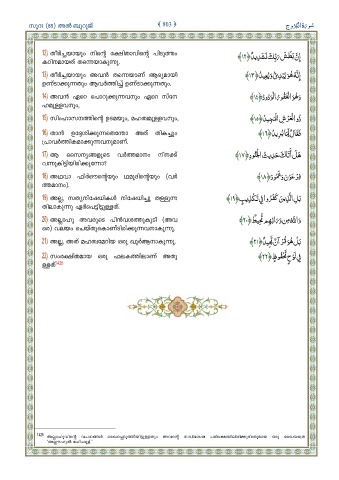 സൂറ: (85) അൽ ബുറൂജ് ﴾ 803 ﴿ سورة البروج
12) തീർച്ചയായും നിന്റെ രക്ഷിതാവിന്റെ പിടുത്തം
കഠിനമായത് തന്നെയാകുന്നു.
إِنَّ بَطْشَ رَبِّكَ لَشَدِيدٌ ﴿١٢﴾
13) തീർച്ചയായും അവൻ തന്നെയാണ് ആദ്യമായി
ഉണ്ടാക്കുന്നതും ആവർത്തിച്ച് ഉണ്ടാക്കുന്നതും.
إِنَّهُ هُوَ يُبْدِئُ وَيُعِيدُ ﴿١٣﴾
14) അവൻ ഏറെ പൊറുക്കുന്നവനും ഏറെ സ്നേ
ഹമുള്ളവനും,
وَهُوَ الْغَفُورُ الْوَدُودُ ﴿١٤﴾
15) സിംഹാസനത്തിന്റെ ഉടമയും, മഹത്വമുള്ളവനും,
ذُو الْعَرْشِ الْمَجِيدُ ﴿١٥﴾
16) താൻ ഉദ്ദേശിക്കുന്നതെന്തോ അത് തികച്ചും
പ്രാവർത്തികമാക്കുന്നവനുമാണ്.
فَعَّالٌ لِمَا يُرِيدُ ﴿١٦﴾
17) ആ സൈന്യങ്ങളുടെ വർത്തമാനം നിനക്ക്
വന്നുകിട്ടിയിരിക്കുന്നോ?
هَلْ أَتَاكَ حَدِيثُ الْجُنُودِ ﴿١٧﴾
18) അഥവാ ഫിർഔന്റെയും ഥമൂദിന്റെയും (വർ
ത്തമാനം).
فِرْعَوْنَ وَثَمُودَ ﴿١٨﴾
19) അല്ല, സത്യനിഷേധികൾ നിഷേധിച്ചു തള്ളുന്ന
തിലാകുന്നു ഏർപെട്ടിട്ടുള്ളത്.
بَلِ الَّذِينَ كَفَرُوا فِي تَكْذِيبٍ ﴿١٩﴾
20) അല്ലാഹു അവരുടെ പിൻവശത്തുകൂടി (അവ
രെ) വലയം ചെയ്തുകൊണ്ടിരിക്കുന്നവനാകുന്നു.
وَاللَّهُ مِنْ وَرَائِهِمْ مُحِيطٌ ﴿٢٠﴾
21) അല്ല, അത് മഹത്വമേറിയ ഒരു ഖുർആനാകുന്നു.
بَلْ هُوَ قُرْآنٌ مَجِيدٌ ﴿٢١﴾
22) സംരക്ഷിതമായ ഒരു ഫലകത്തിലാണ് അതു
ള്ളത്
فِي لَوْحٍ مَحْفُوظٍ ﴿٢٢﴾